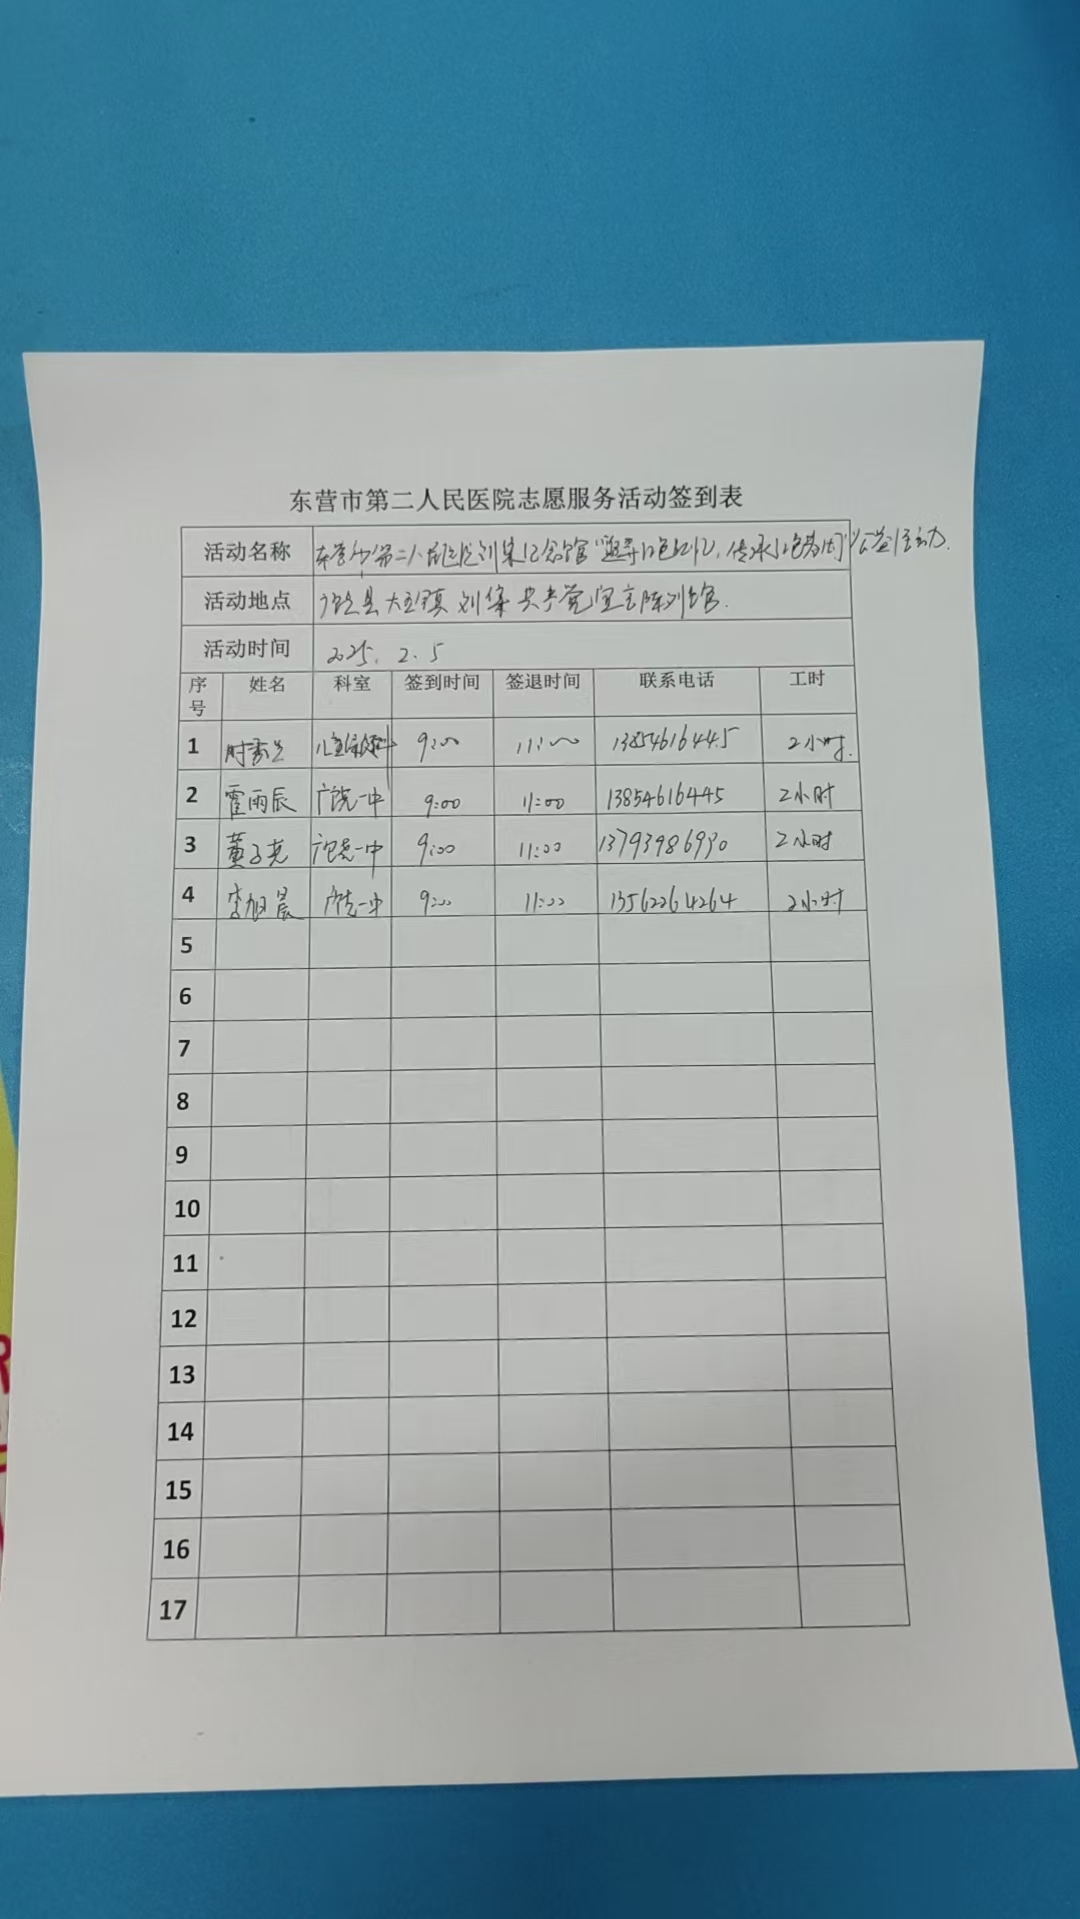 东营市第二人民医院志愿服务活动签到表
活动名称 东营市第二人民医院刘集纪念馆"追寻红色记忆,传承红色基因"公益活动.
活动地点 广饶县大王镇刘集共产党宣言陈列馆.
活动时间 2025. 2. 5
序号 姓名 科室 签到时间 签退时间 联系电话 工时
1 时秀兰 儿童保健科 9:00 11:00 13854616445 2小时.
2 霍雨辰 广饶一中 9:00 11:00 13854616445 2小时
3 董子尧 广饶一中 9:00 11:00 13793986930 2小时
4 李旭晨 广饶一中 9:00 11:00 13562264264 2小时
5
6
7
8
9
10
11
12
13
14
15
16
17